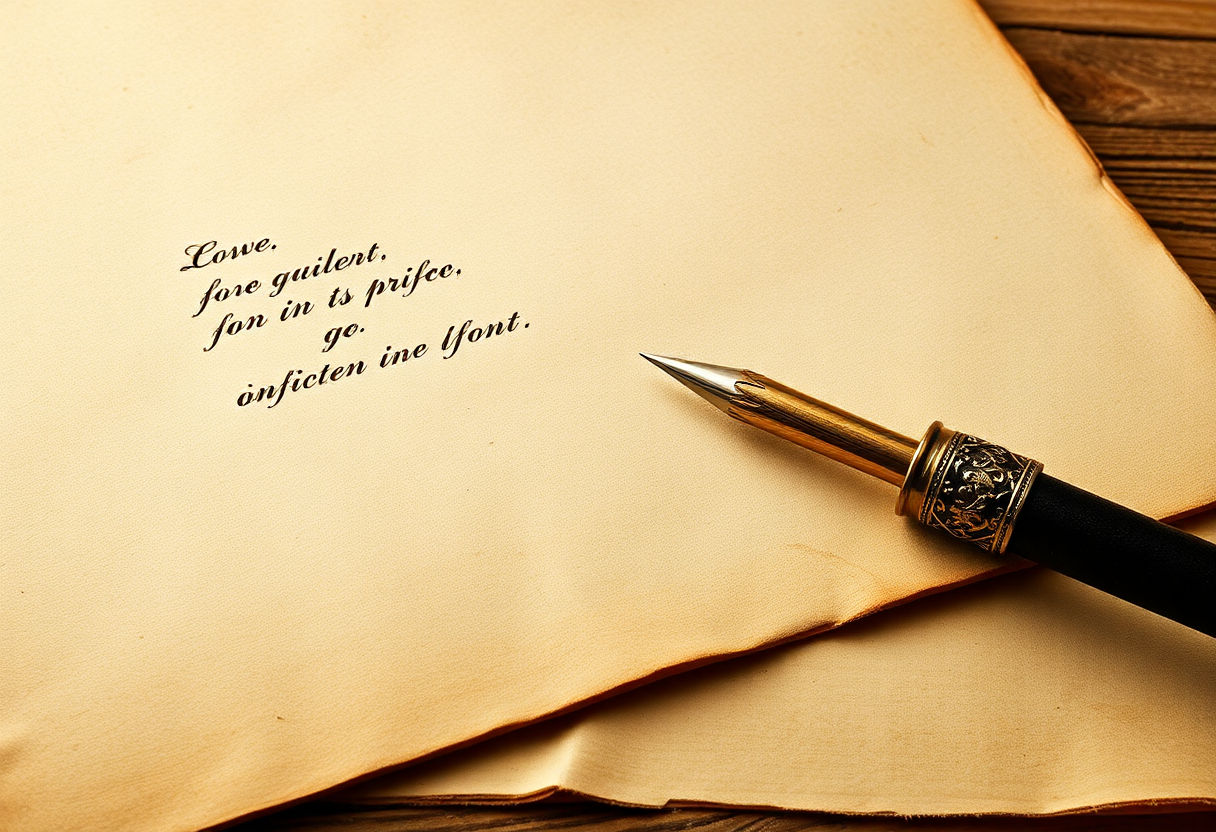 Lowe.
fore guilent.
fon in ts prifce.
go.
onficten ine lfont.